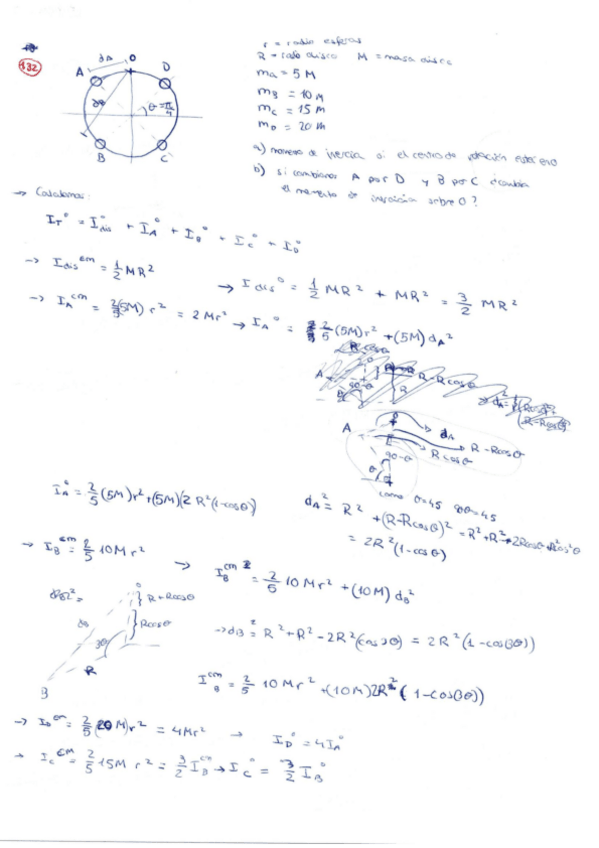 132
dA O
A D
dB θ = π/4
B C
r = radio esferas
R = radio disco M = masa disco
mA = 5M
mB = 10M
mC = 15M
mD = 20M
a) momento de inercia si el centro de rotación está en O
b) si cambiamos A por D y B por C ¿cambia
el momento de inercia sobre O?
→ Calculamos:
I_T° = I_dis° + I_A° + I_B° + I_C° + I_D°
→ I_dis^cm = 1/2 MR² → I_dis° = 1/2 MR² + MR² = 3/2 MR²
→ I_A^cm = 2/5 (5M) r² = 2Mr² → I_A° = 2/5 (5M)r² + (5M) dA²
A R - Rcosθ
90-θ R
A dA R - Rcosθ
Rcosθ
90-θ
θ
como θ=45 90-θ=45
I_A° = 2/5 (5M) r² + (5M)(2R²(1-cosθ)
dA² = R² + (R-Rcosθ)² = R² + R² - 2Rcosθ + R²cos²θ
= 2R²(1-cosθ)
→ I_B^cm = 2/5 10Mr² → I_B^cm = 2/5 10Mr² + (10M) dB²
} R + Rcosθ
} Rcosθ
3θ
R
B
→ dB² = R² + R² - 2R²(cos3θ) = 2R²(1-cos(3θ))
I_B^cm = 2/5 10Mr² + (10M)2R²(1-cos(3θ))
→ I_D^cm = 2/5 (20M)r² = 4Mr² → I_D° = 4I_A°
→ I_C^cm = 2/5 15M r² = 3/2 I_B^cm → I_C° = 3/2 I_B°